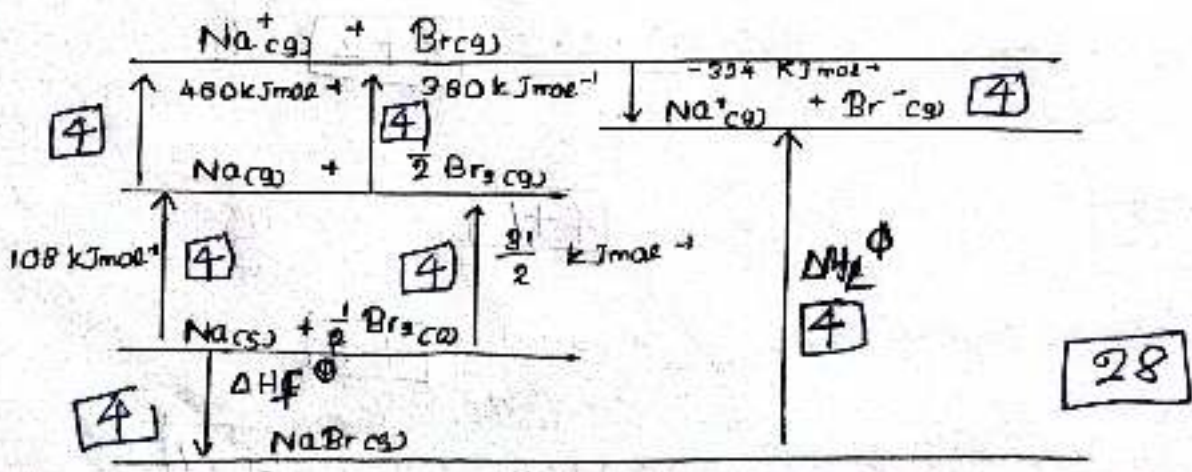 Na⁺(g) + Br(g)
460 kJmol⁻¹ 380 kJmol⁻¹ -334 KJmol⁻¹
4 4 Na⁺(g) + Br⁻(g) 4
Na(g) + 1/2 Br₂(g)
108 kJmol⁻¹ 4 4 31/2 kJmol⁻¹ ΔH_L^Φ
4
Na(s) + 1/2 Br₂(l)
ΔHf^Φ 28
4
NaBr(s)